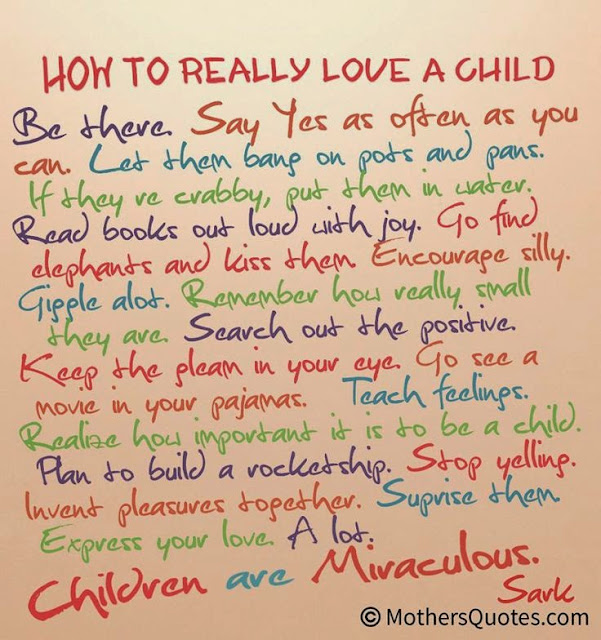 HOW TO REALLY LOVE A CHILD
Be there. Say Yes as often as you
can. Let them bang on pots and pans.
If they re crabby, put them in water.
Read books out loud with joy. Go find
elephants and kiss them. Encourage silly.
Giggle alot. Remember how really small
they are. Search out the positive.
Keep the gleam in your eye. Go see a
movie in your pajamas. Teach feelings.
Realize how important it is to be a child.
Plan to build a rocketship. Stop yelling.
Invent pleasures together. Suprise them.
Express your love. A lot.
Children are Miraculous.
Sark
© MothersQuotes.com